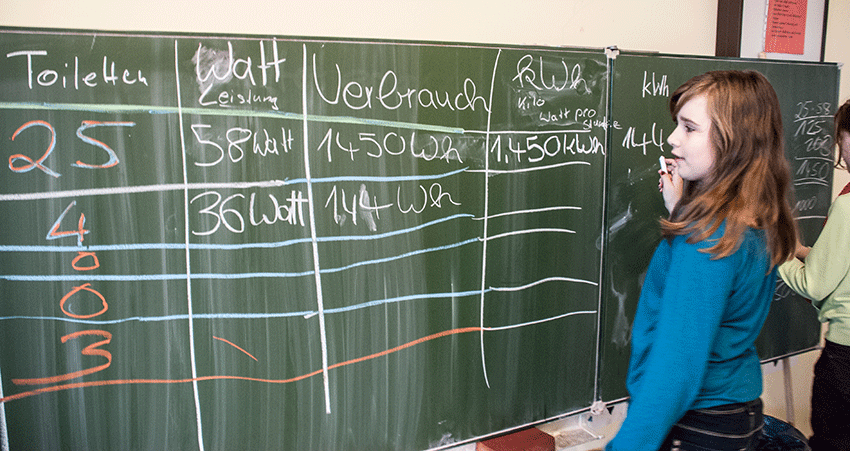 Toiletten Watt Verbrauch kWh kWh
Leistung Kilo
Watt pro
Stunde
25 58 Watt 1450 Wh 1,450 kWh 144
4 36 Watt 144 Wh
0
0
3
25·58
125
200
1450